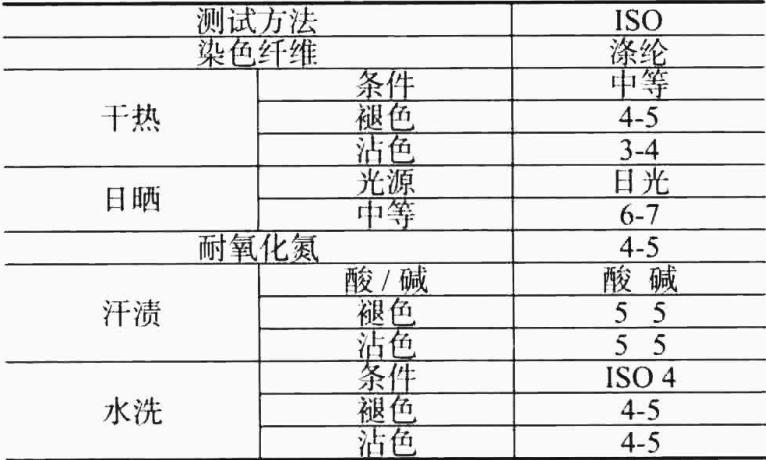 测试方法 ISO
染色纤维 涤纶
干热 条件 中等
褪色 4-5
沾色 3-4
日晒 光源 日光
中等 6-7
耐氧化氮 4-5
汗渍 酸 / 碱 酸 碱
褪色 5 5
沾色 5 5
水洗 条件 ISO 4
褪色 4-5
沾色 4-5